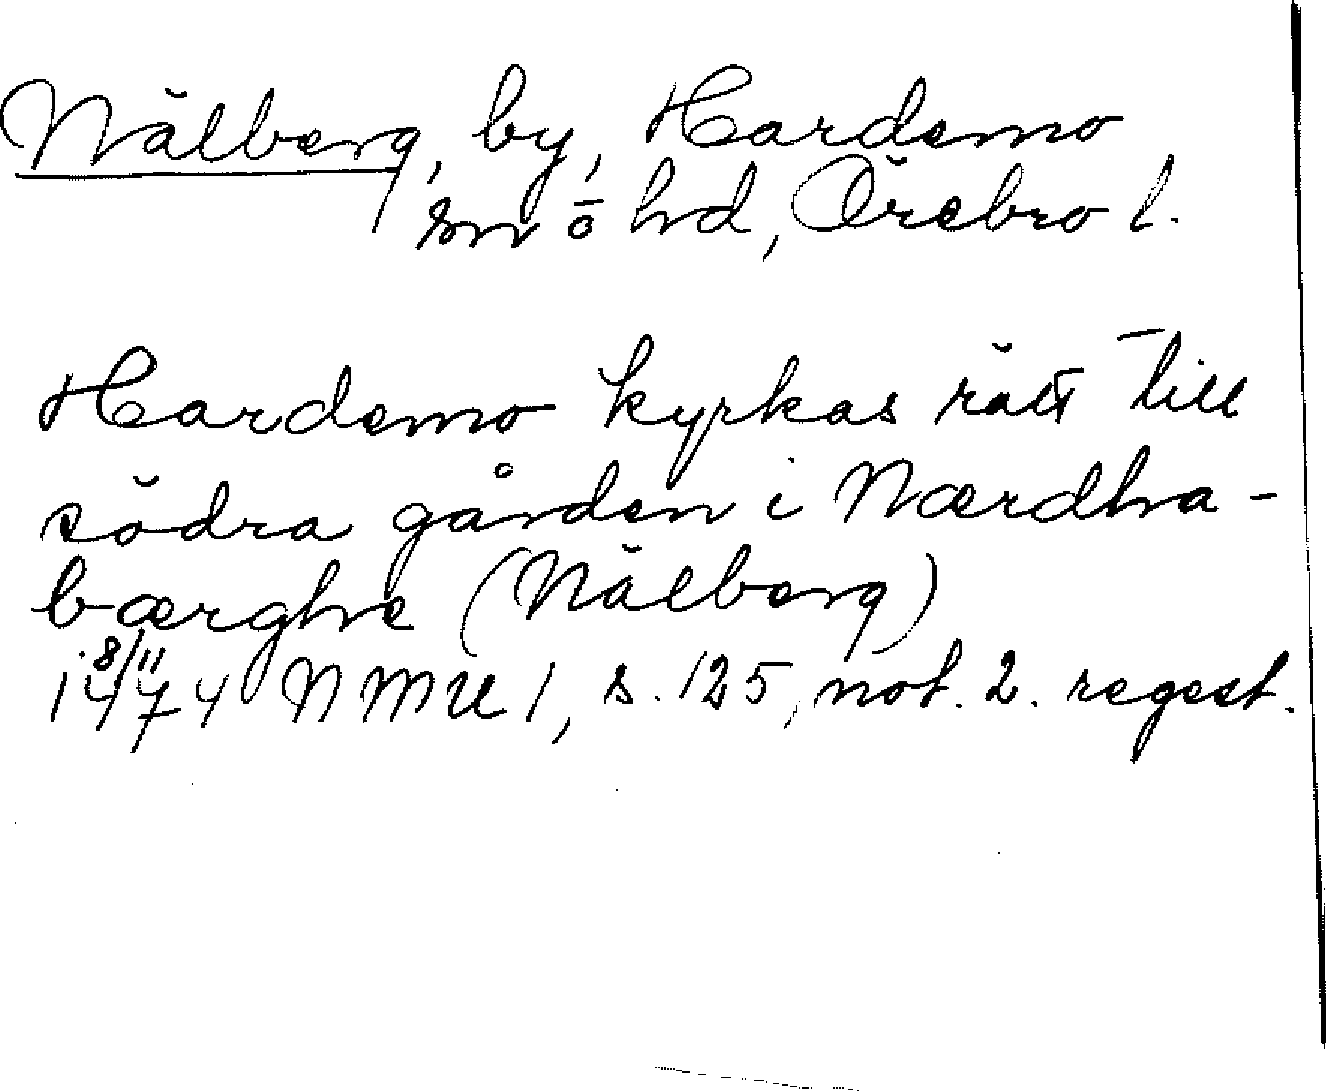 Nälberg, by, Hardemo
sn ö hd, Örebro l.
Hardemo kyrkas rätt till
södra gården i Nærdha-
bærghe (Nälberg)
8/11
1474 NMU 1, s. 125, not. 2. regest.